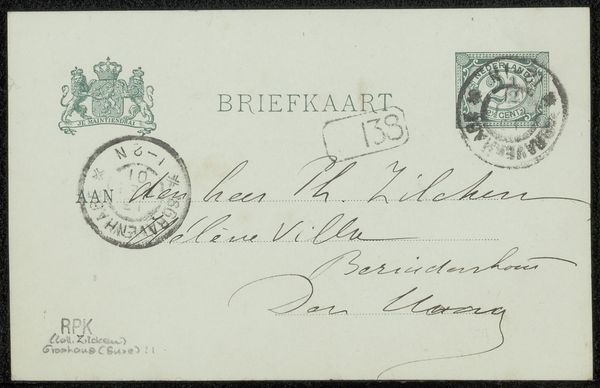 JE MAINTIENDRAI
BRIEFKAART
NEDERLAND
2½ CENT
138
'S GRAVENHAGE
1-2N
'SGRAVENHA
01
AAN den heer Ph. Zilcken
Hélène Villa
Bezuidenhout
Den Haag
RPK
(coll. Zilcken)